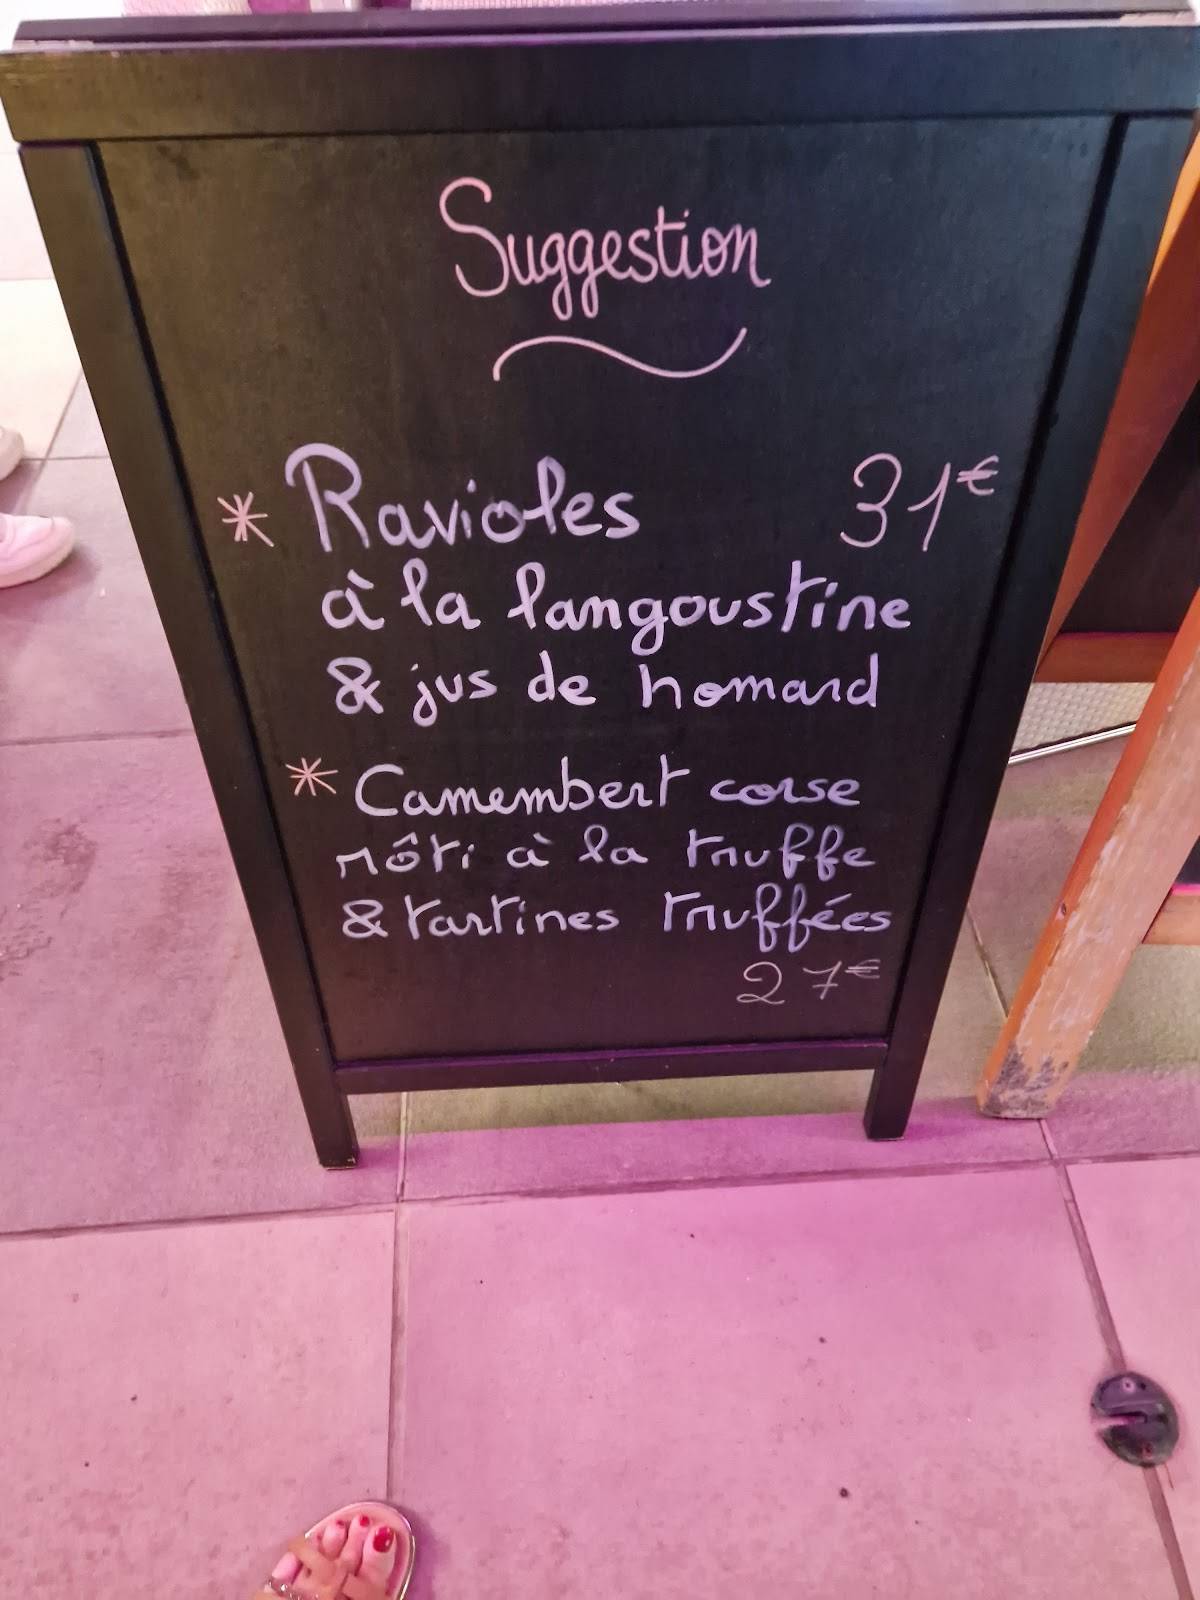 Suggestion
* Ravioles 31€
à la langoustine
& jus de homard
* Camembert corse
rôti à la truffe
& tartines truffées
27€